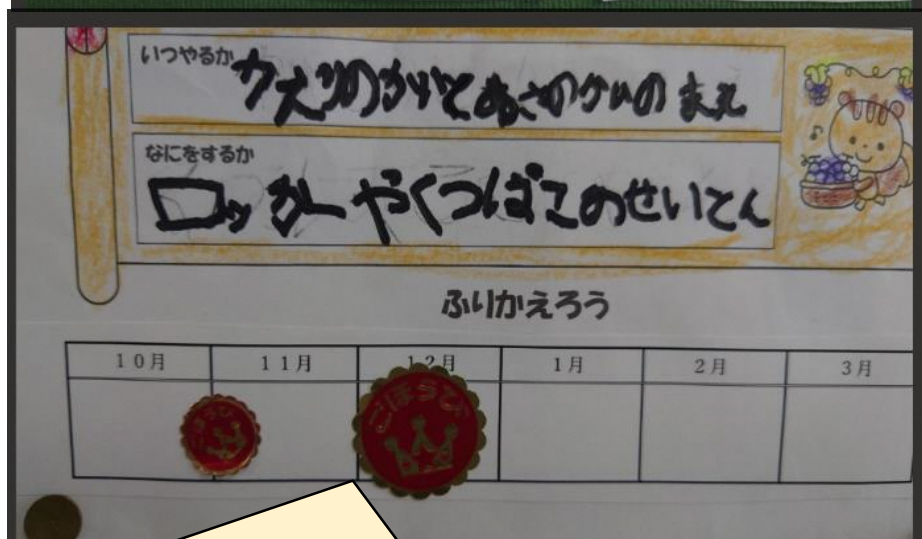 いつやるか
かえりのかいとあさのかいのまえ
なにをするか
ロッカーやくつばこのせいとん
ふりかえろう
10月 11月 12月 1月 2月 3月
ごほうび ごほうび